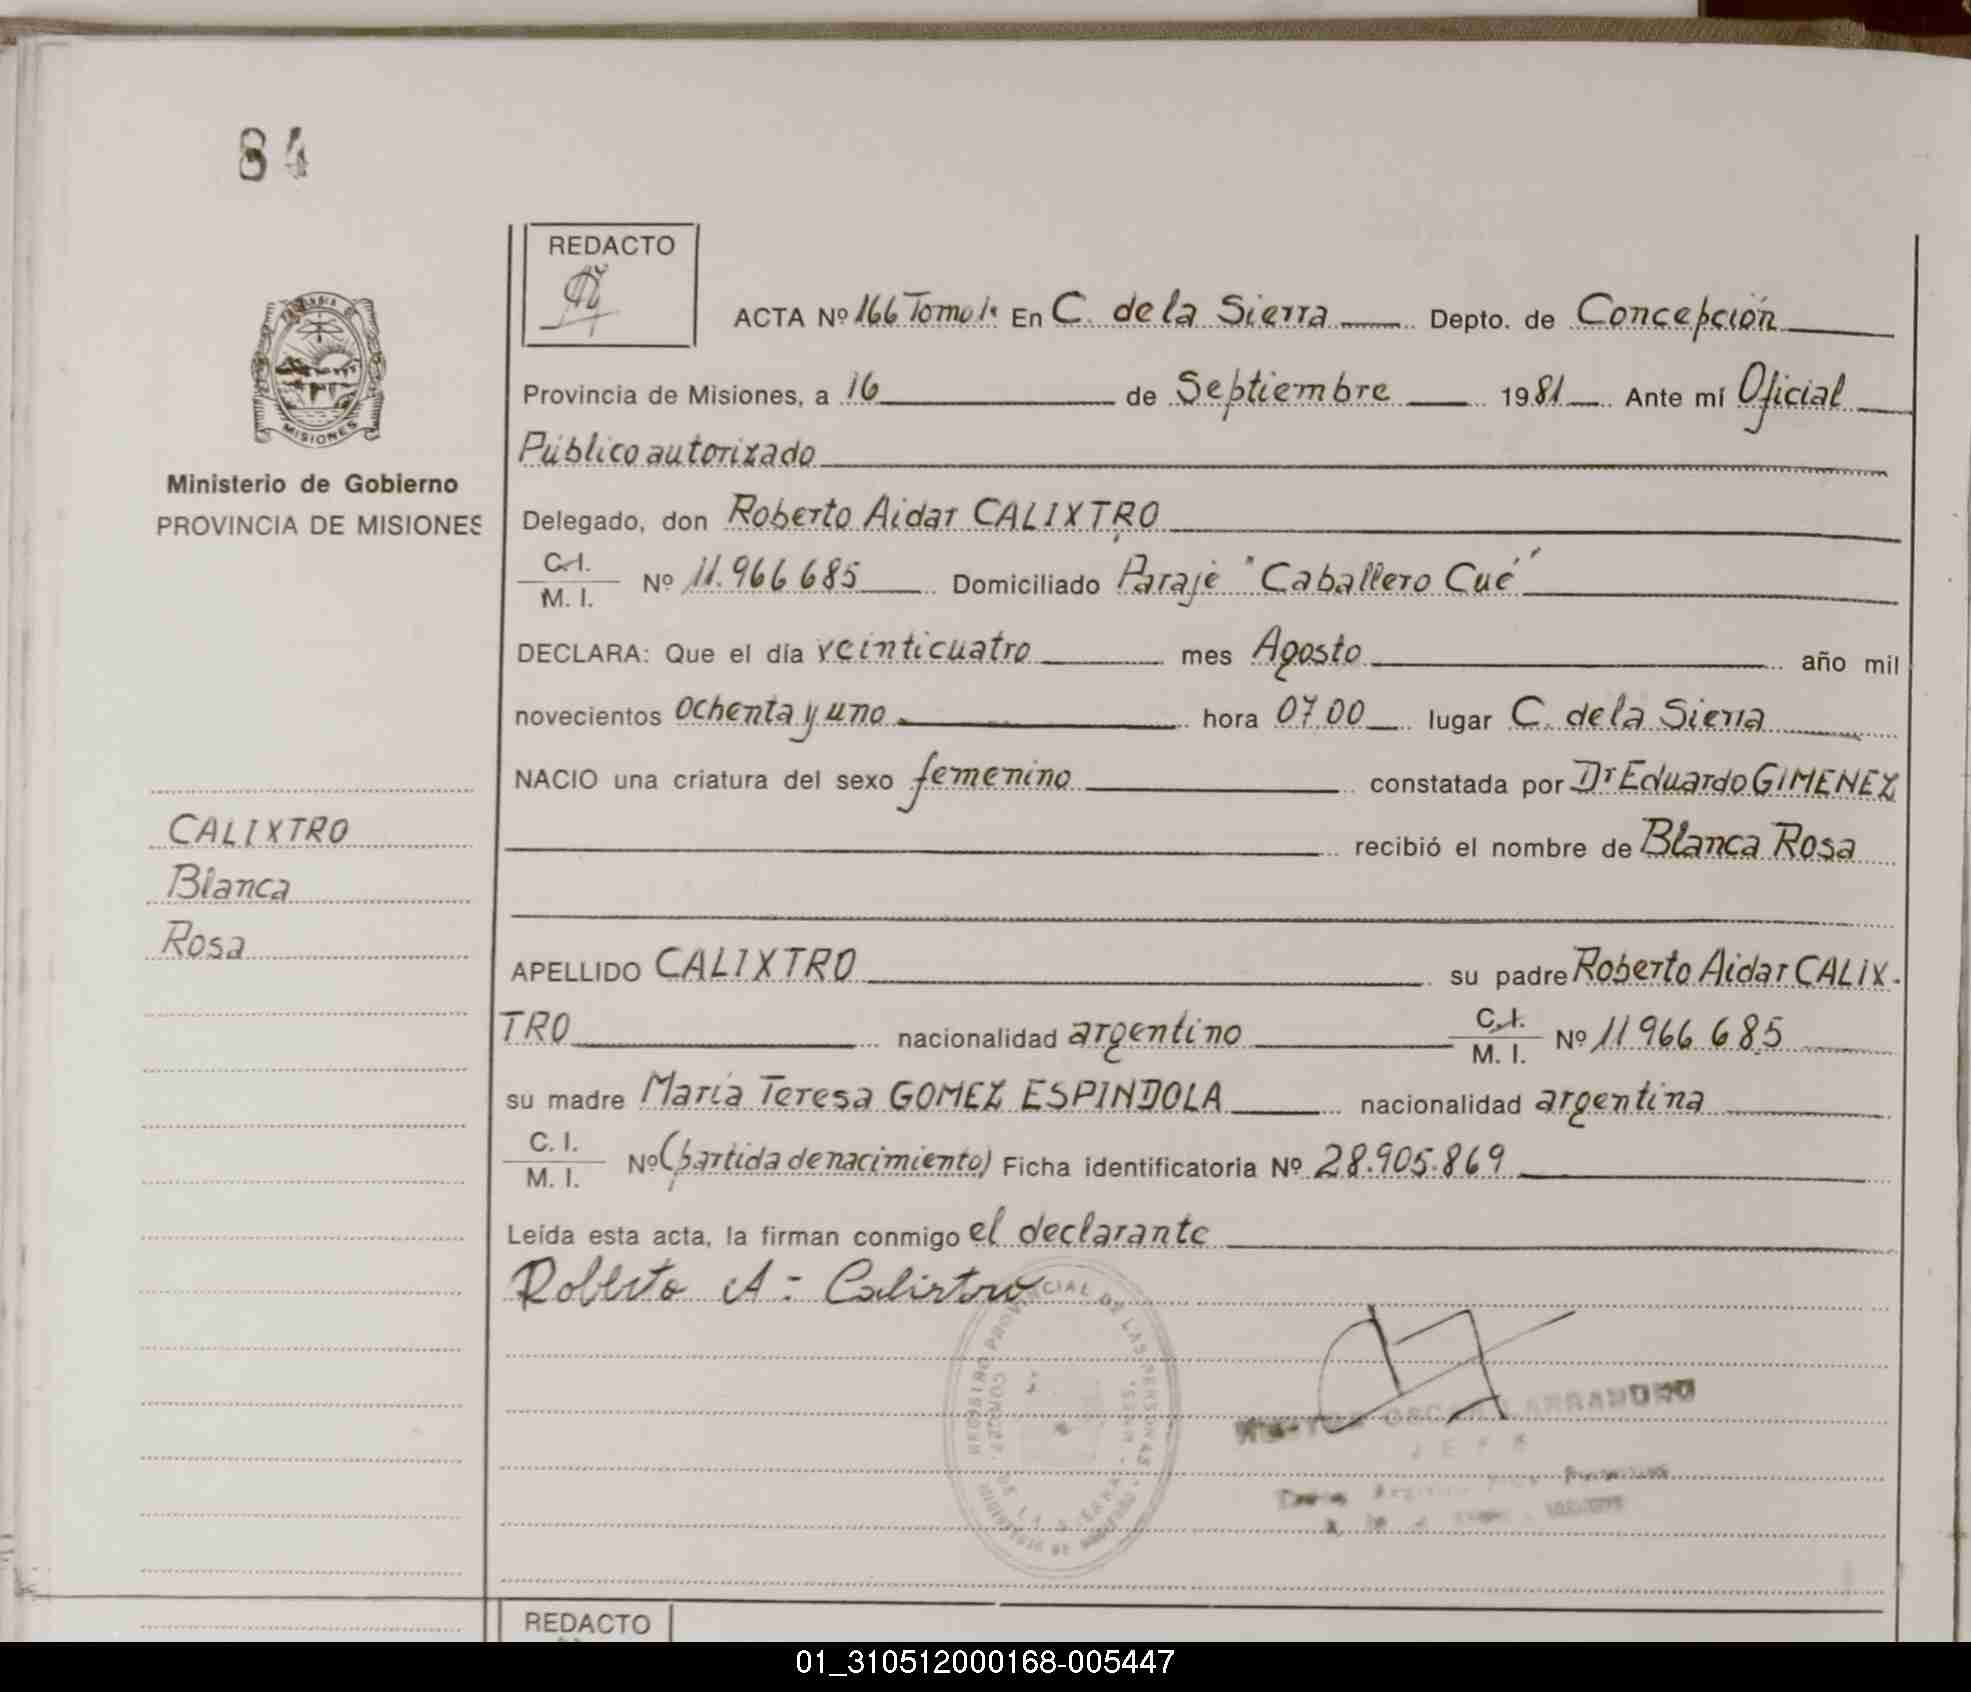 84
REDACTO
ACTA Nº 166 Tomo 1º En C. de la Sierra Depto. de Concepción
Provincia de Misiones, a 16 de Septiembre 1981 Ante mí Oficial
MISIONES
Público autorizado
Ministerio de Gobierno
PROVINCIA DE MISIONES
Delegado, don Roberto Aidar CALIXTRO
C.I.
M. I. Nº 11.966 685 Domiciliado Paraje "Caballero Cué"
DECLARA: Que el día veinticuatro mes Agosto año mil
novecientos ochenta y uno hora 07.00 lugar C. de la Sierra
NACIO una criatura del sexo femenino constatada por Dr Eduardo GIMENEZ
CALIXTRO
recibió el nombre de Blanca Rosa
Blanca
Rosa
APELLIDO CALIXTRO su padre Roberto Aidar CALIX-
TRO nacionalidad argentino C.I.
M. I. Nº 11 966 685
su madre María Teresa GOMEZ ESPINDOLA nacionalidad argentina
C. I.
M. I. Nº (partida de nacimiento) Ficha identificatoria Nº 28.905.869
Leída esta acta, la firman conmigo el declarante
Roberto A. Calixtro
REGISTRO PROVINCIAL DE LAS PERSONAS
OSCAR
JEFE
REDACTO
01_310512000168-005447